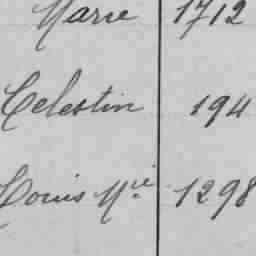 Marie 1712
Celestin 194
Louis Mie 1298